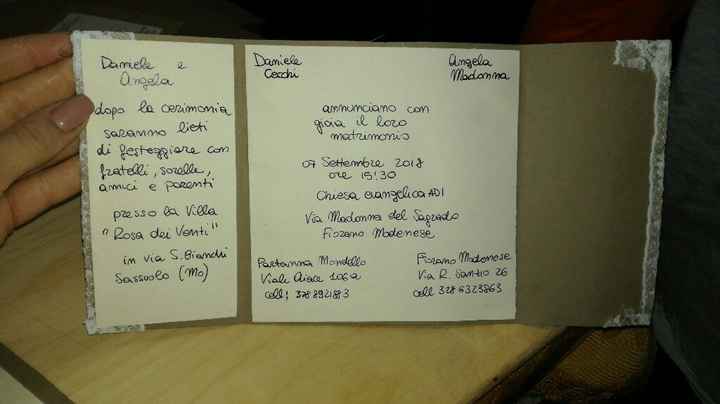 Daniele e
Angela
dopo la cerimonia
saranno lieti
di festeggiare con
fratelli, sorelle,
amici e parenti
presso la Villa
"Rosa dei Venti"
in via S. Bianchi
Sassuolo (Mo)
Daniele
Cecchi
Angela
Madonna
annunciano con
gioia il loro
matrimonio
07 Settembre 2018
ore 15:30
Chiesa evangelica ADI
Via Madonna del Sagrado
Fiorano Modenese
Partanna Mondello
Viale Aiace 106a
cell:
Fiorano Modenese
Via R. 26
cell 328 6323863